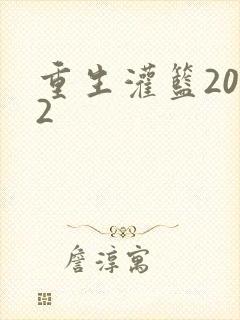 重生灌篮20
2
詹淳寓